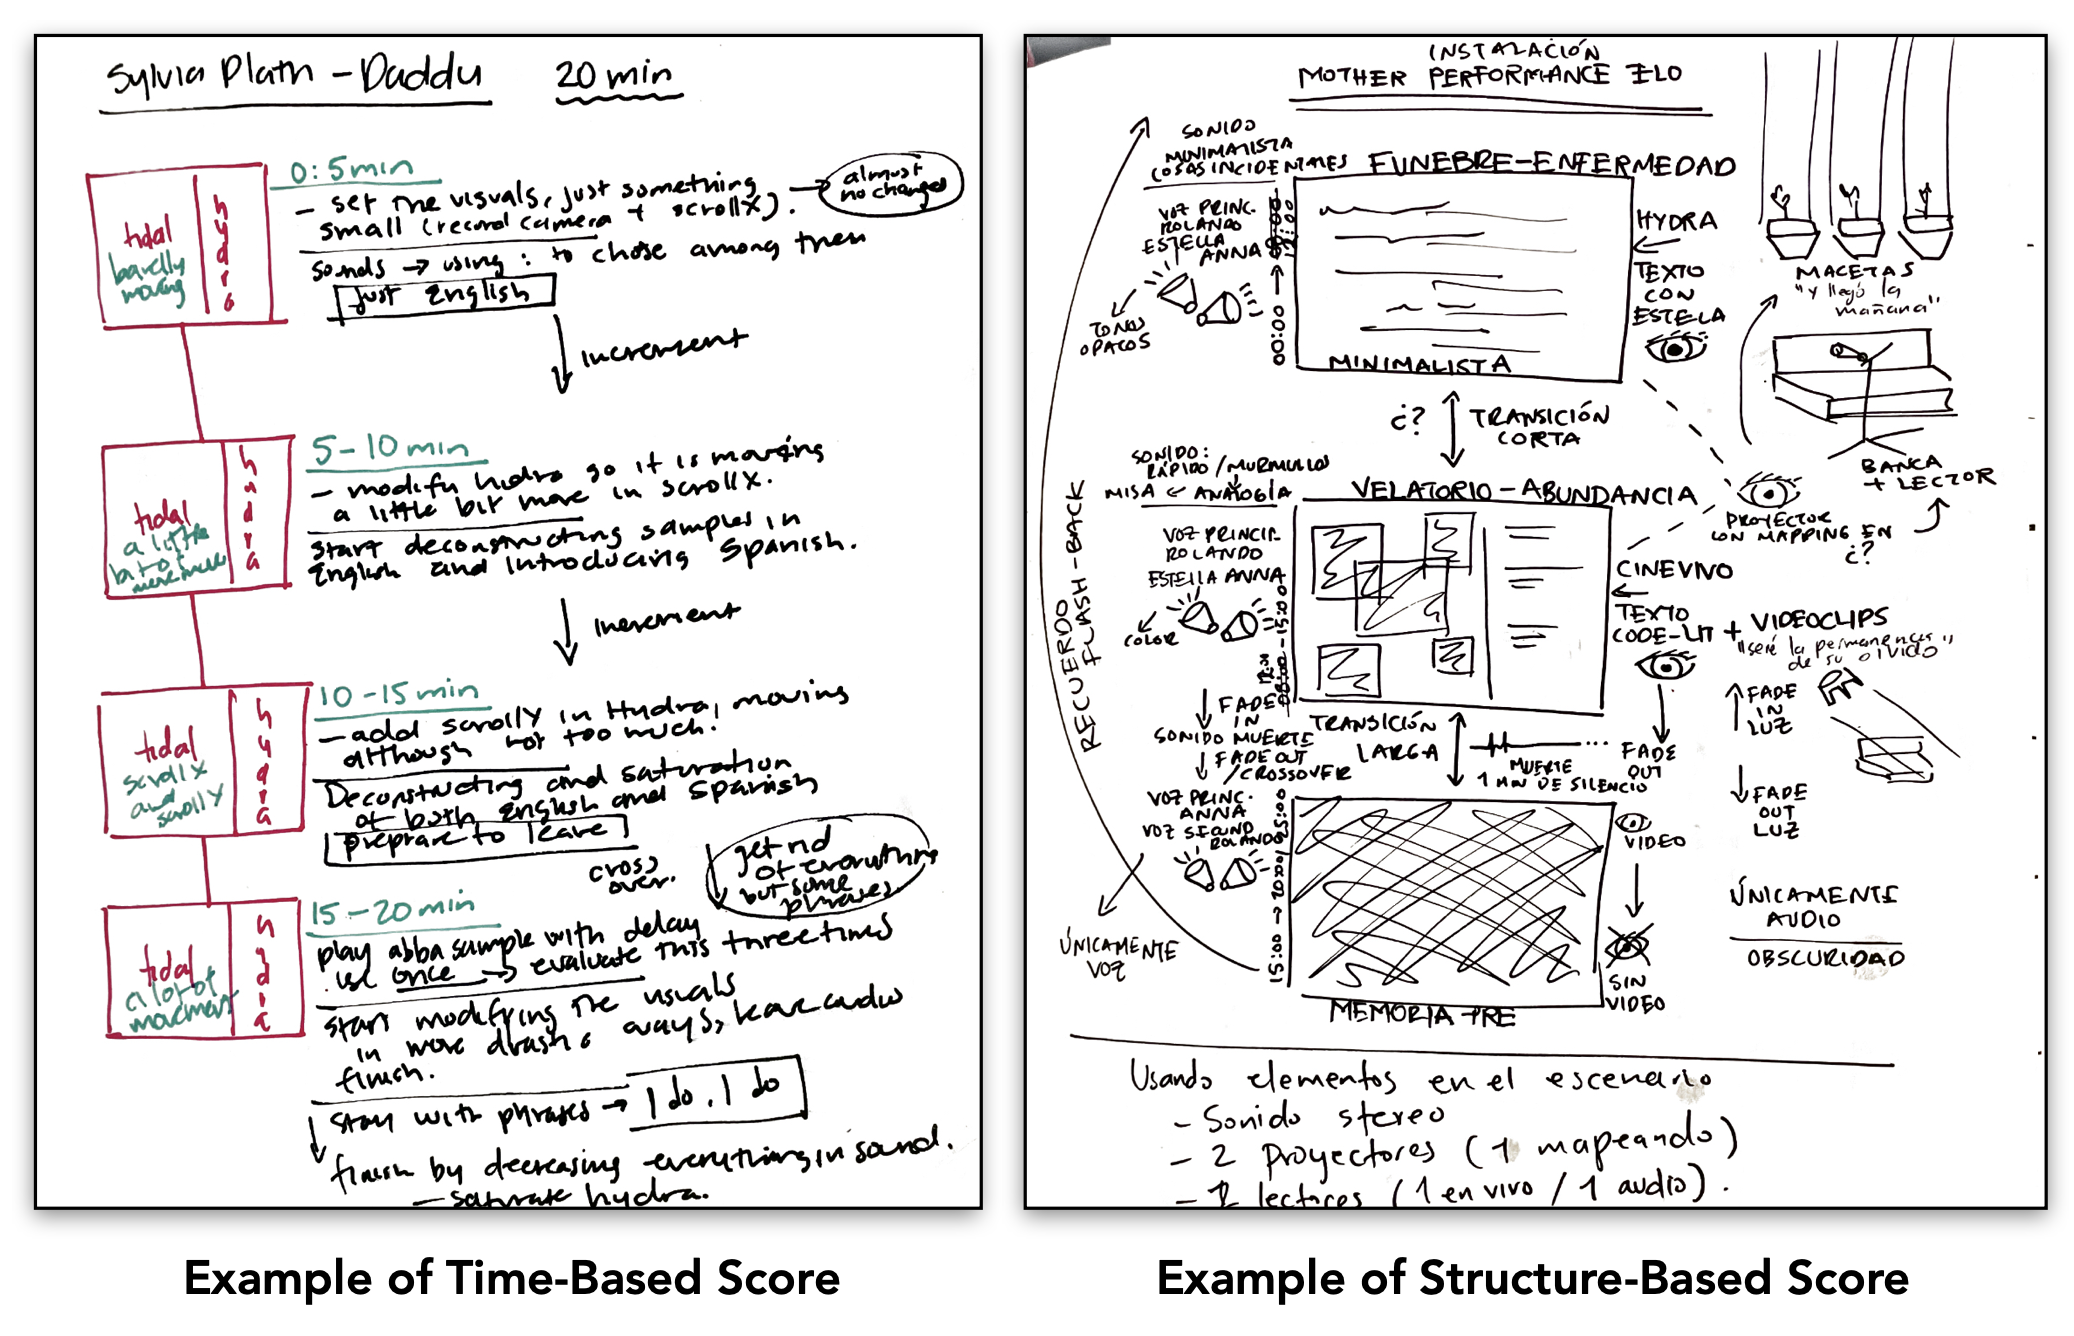 Sylvia Plath - Daddy 20 min
0:5min
- set the visuals, just something
small (record camera + scrollX).
almost
no changes
sounds → using: to chose among them
just English
tidal
barelly
moving
hydra
increment
5-10 min
- modify hidra so it is moving
a little bit more in scrollX.
start deconstructing samples in
English and introducing Spanish.
tidal
a little
bit of
movement
hydra
increment
10-15 min
- add scrollY in Hydra, moving
although not too much.
Deconstructing and saturation
of both English and Spanish
preprare to leave
tidal
scrollX
and
scrollY
hydra
cross
over.
get rid
of everything
but some
phrases
15-20 min
play abba sample with delay
use once → evaluate this three times
start modifying the visuals
in more drastic ways, leave audio
finish.
tidal
a lot of
movement
hydra
stay with phrases → I do, I do
finish by decreasing everything in sound.
- saturate hydra.
Example of Time-Based Score
INSTALACIÓN
MOTHER PERFORMANCE ILO
SONIDO
MINIMALISTA
COSAS INCIDENTALES
FUNEBRE-ENFERMEDAD
VOZ PRINC.
ROLANDO
ESTELLA
ANNA
TONOS
OPACOS
00:00
MINIMALISTA
HYDRA
TEXTO
CON
ESTELA
MACETAS
"y llegó la
mañana"
BANCA
+ LECTOR
PROYECTOR
CON MAPPING EN
¿?
¿?
TRANSICIÓN
CORTA
RECUERDO
FLASH-BACK
SONIDO:
RÁPIDO / MURMULLOS
MISA ← ANALOGÍA
VELATORIO-ABUNDANCIA
VOZ PRINCIP.
ROLANDO
ESTELLA ANNA
COLOR
15:00
CINEVIVO
TEXTO
CODE-LIT + VIDEOCLIPS
"seré la permanencia
de su olvido"
FADE
IN
SONIDO MUERTE
FADE OUT
/CROSSOVER
TRANSICIÓN
LARGA
MUERTE
1 MIN DE SILENCIO
FADE
OUT
FADE
IN
LUZ
FADE
OUT
LUZ
VOZ PRINC.
ANNA
VOZ SEGUND
ROLANDO
ÚNICAMENTE
VOZ
15:00 → 20:00/25:00
VIDEO
SIN
VIDEO
MEMORIA-PRE
ÚNICAMENTE
AUDIO
OBSCURIDAD
Usando elementos en el escenario
- Sonido stereo
- 2 Proyectores (1 mapeando)
- 2 lectores (1 en vivo / 1 audio).
Example of Structure-Based Score